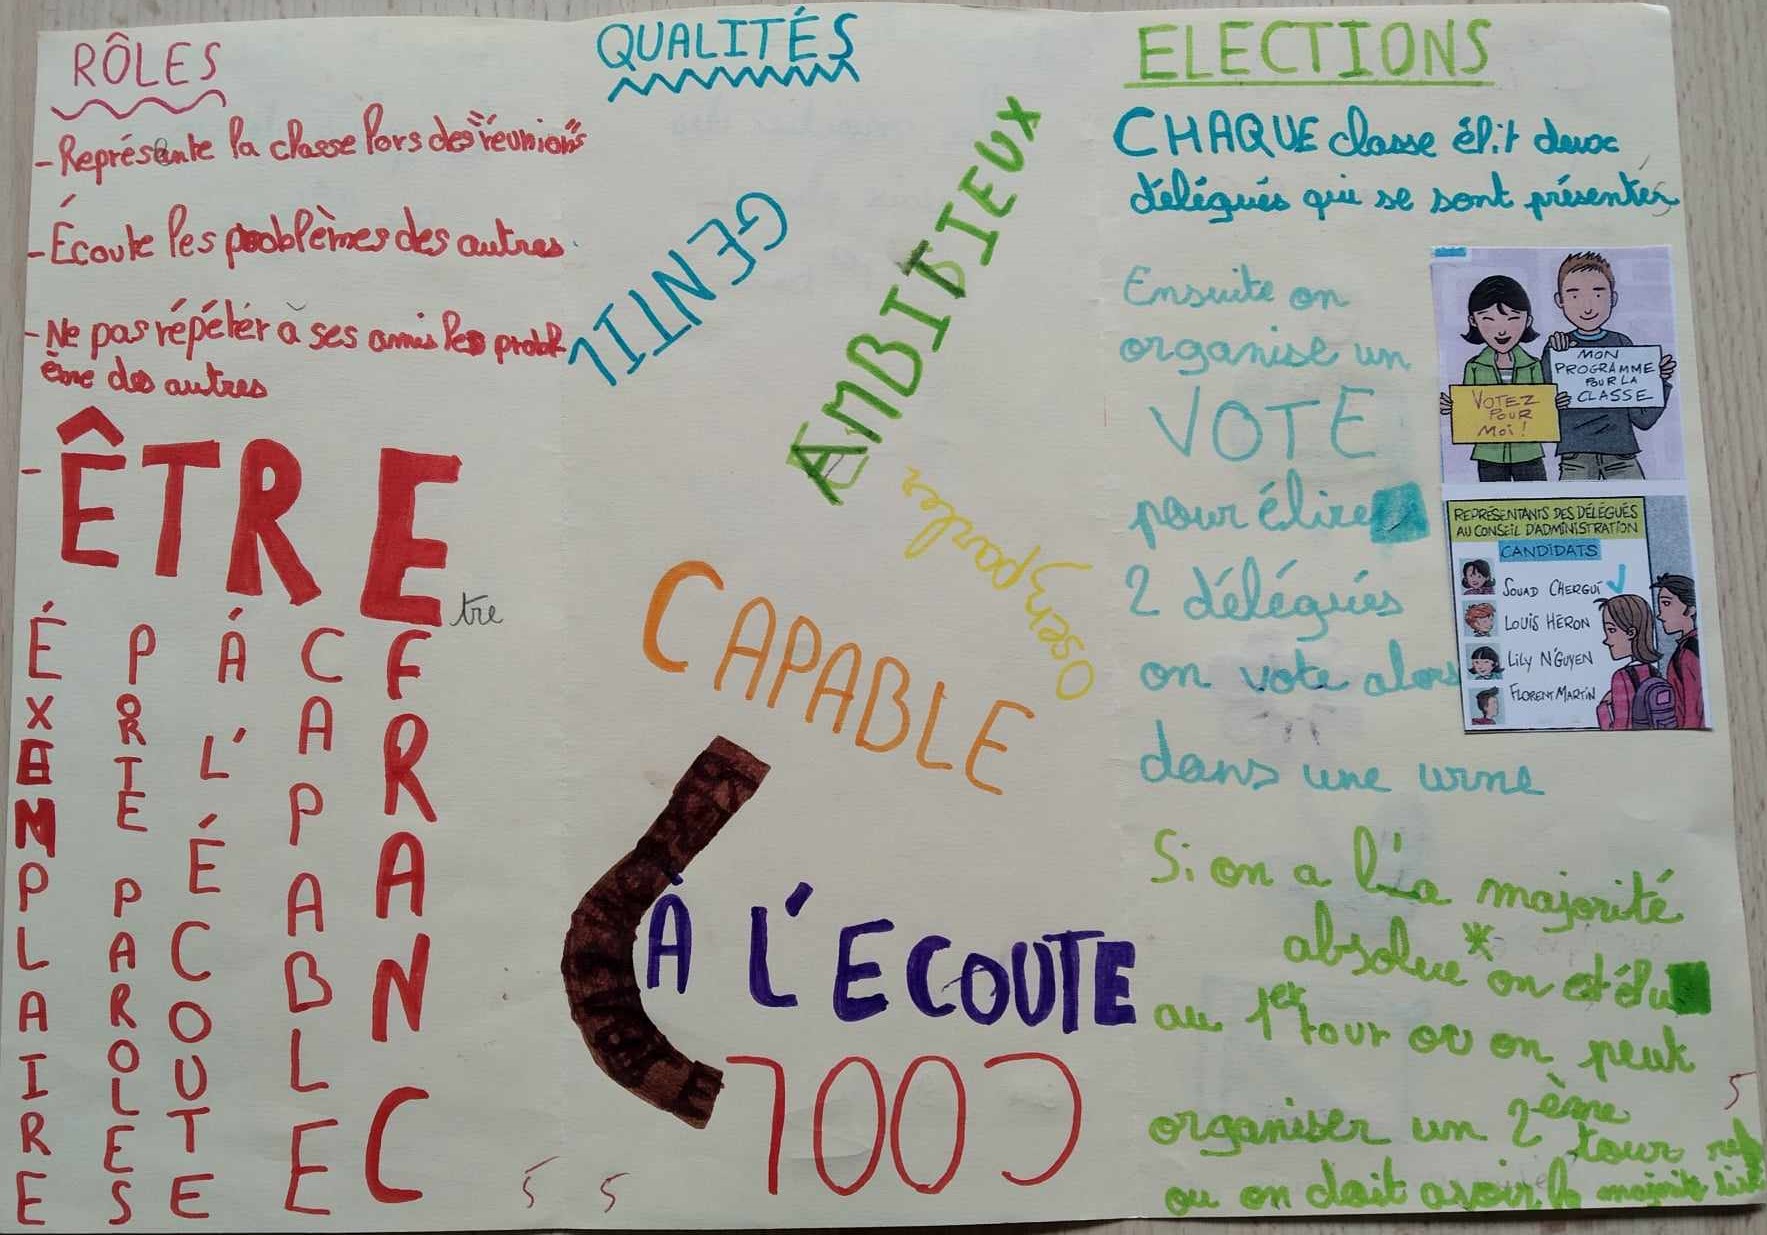 RÔLES
- Représente la classe lors des "réunions"
- Écoute les problèmes des autres
- Ne pas répéter à ses amis les probl
ème des autres
- ÊTRE
tre
ÉXEMPLAIRE
PORTE PAROLES
À L'ÉCOUTE
CAPABLE
FRANC
5
QUALITÉS
GENTIL
AMBIDIEUX
oser parler
CAPABLE
À L'ECOUTE
COOL
5
ELECTIONS
CHAQUE classe élit deux
délégués qui se sont présentés
Ensuite on
organise un
VOTE
pour élire
2 délégués
on vote alors
dans une urne
VOTEZ
POUR
MOI !
MON
PROGRAMME
POUR LA
CLASSE
REPRÉSENTANTS DES DÉLÉGUÉS
AU CONSEIL D'ADMINISTRATION
CANDIDATS
SOUAD CHERGUI
LOUIS HÉRON
LILY N'GUYEN
FLORENT MARTIN
Si on a l'a majorité
absolue * on est élu
au 1er tour ou on peut
organiser un 2ème tour
ou on doit avoir la majorité
5